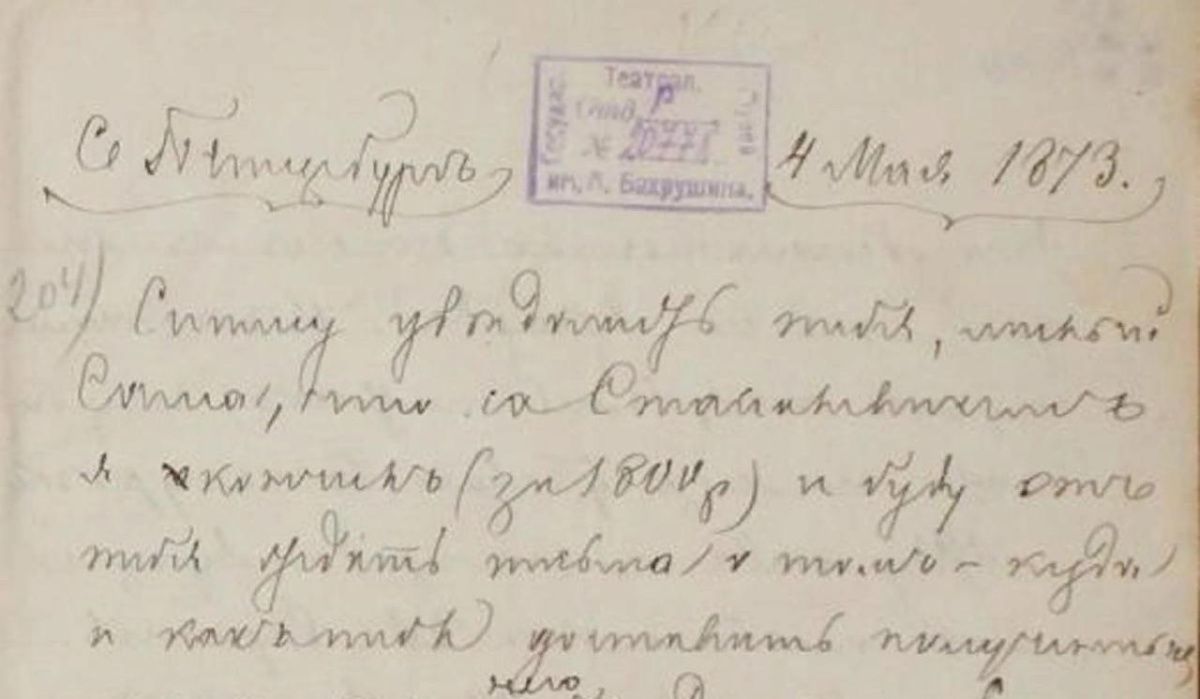 С Петербургъ
4 Мая 1873.
Театрал.
Госудас.
№ 20771
им. А. Бахрушина.
204) Спѣшу увѣдомить тебя, милый
Саша, что съ Стасюлевичемъ
я кончилъ (за 1800 р) и буду отъ
тебя ждать письма о томъ – куда
и какъ тебѣ доставить
него